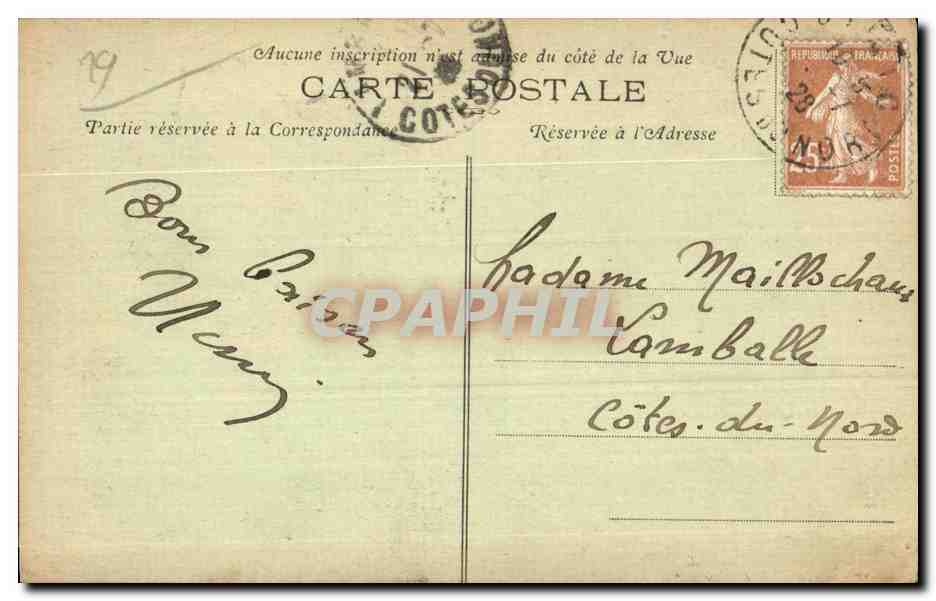 29
Aucune inscription n'est admise du côté de la Vue
CARTE POSTALE
Partie réservée à la Correspondance
Réservée à l'Adresse
REPUBLIQUE FRANÇAISE
POSTES
COTES DU NORD
28
COTES
Bons
Baisers
Madame Maillschaux
Lamballe
Côtes-du-Nord
CPAPHIL